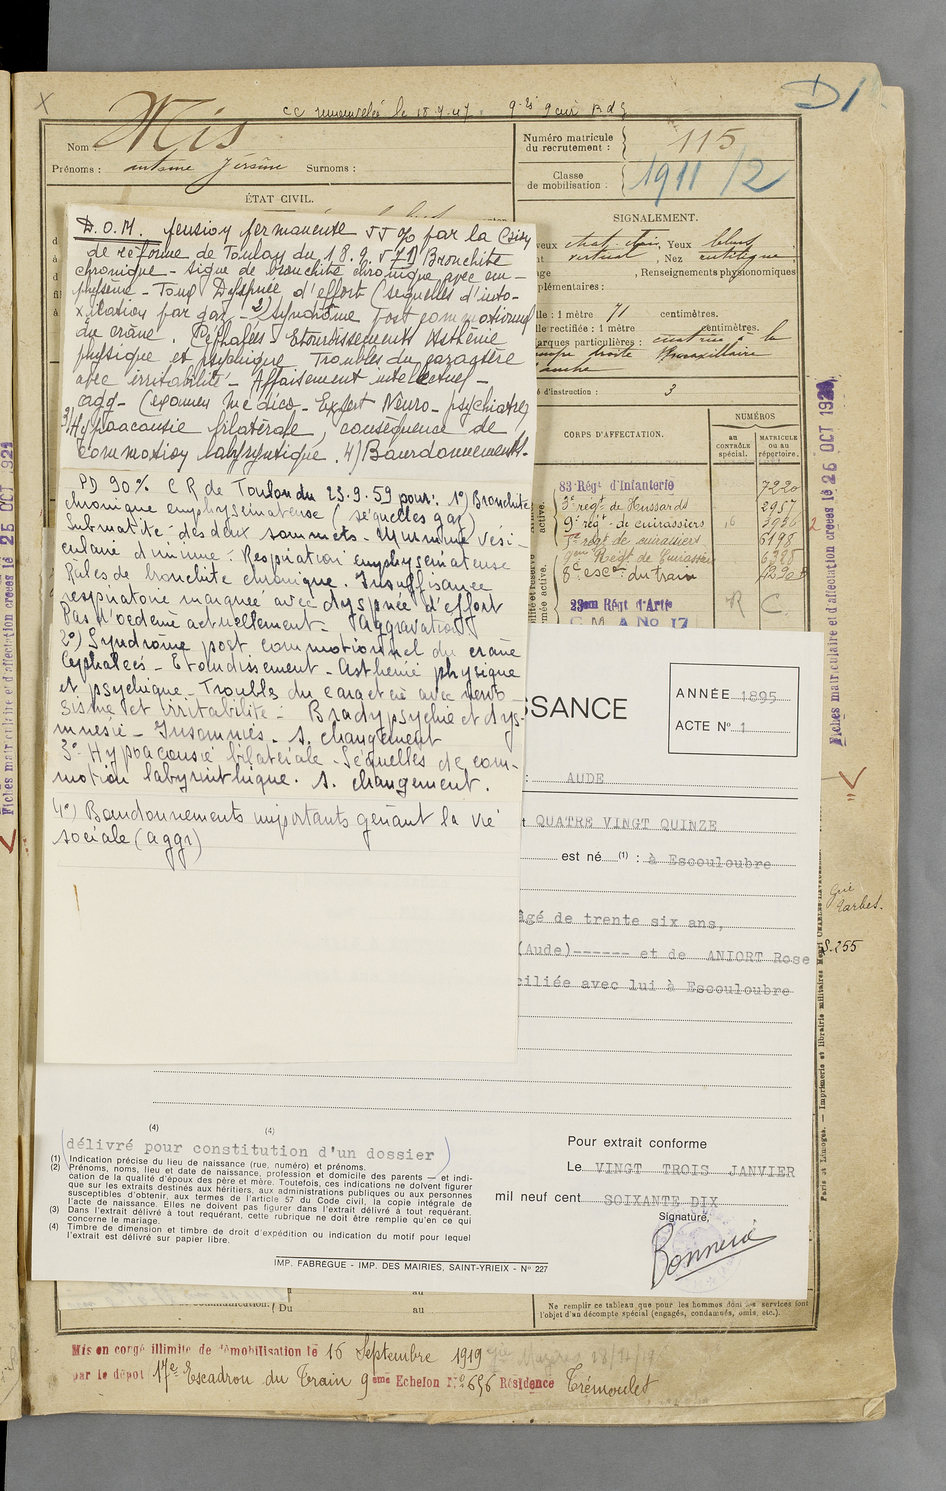 CC renouvelée le 18.9.47
D1
Nom Mis
Prénoms : antoine Jersine Surnoms :
Numéro matricule du recrutement : 115
Classe de mobilisation : 1911/2
ÉTAT CIVIL.
SIGNALEMENT.
veux chat. clair, Yeux bleus
vertical, Nez rectiligne
, Renseignements physionomiques
plémentaires :
lle : 1 mètre 71 centimètres.
lle rectifiée : 1 mètre centimètres.
arques particulières : cicatrice à la
droite
é d'instruction : 3
CORPS D'AFFECTATION.
NUMÉROS
au CONTRÔLE spécial.
MATRICULE ou au répertoire.
83 Régt d'Infanterie 7220
3e régt de Hussards 2957
9e régt de cuirassiers 3956
de cuirassiers 5198
Régt de Cuirassiers 6385
8e escon du train
23em Régt d'Artie R C
C M A No 17
D.O.M. pension permanente 55% par la Coion
de réforme de Toulon du 18.9.57 1) Bronchite
chronique - signe de bronchite chronique avec em-
physème - Toux Dyspnée d'effort (séquelles d'into-
xication par gaz - 2) Syndrôme post commotionnel
du crâne. Céphalées Etourdissements Asthénie
physique et psychique Troubles du caractère
avec irritabilité - Affaisement intelectuel -
agg - (examen Médico - Expert Neuro - psychiatre)
3) Hypoacousie bilatérale, conséquence de
commotion labyryntique. 4) Bourdonnements.
PD 90% CR de Toulon du 23.9.59 pour : 1°) Bronchite
chronique emphysémateuse (séquelles gaz)
Submatité des deux sommets - Murmure vési-
culaire diminué - Respiration emphysémateuse
Râles de bronchite chronique. Insuffisance
respiratoire marquée avec dyspnée d'effort
Pas d'oedème actuellement - (Aggravation)
2°) Syndrôme post commotionnel du crâne
Céphalées - Etourdissement - Asthénie physique
et psychique - Troubles du caractère avec nervo-
sisme et irritabilité - Bradypsychie et dys-
mnésie - Insomnies. s. changement
3° Hypoacousie bilatérale - Séquelles de com-
motion labyrinthique. s. changement.
4°) Bourdonnements importants gênant la vie
sociale (aggr)
SSANCE
ANNÉE 1895
ACTE N° 1
: AUDE
QUATRE VINGT QUINZE
est né (1) : à Escouloubre
âgé de trente six ans,
(Aude)------ et de ANIORT Rose
ciliée avec lui à Escouloubre
(4) (4)
délivré pour constitution d'un dossier
(1) Indication précise du lieu de naissance (rue, numéro) et prénoms.
(2) Prénoms, noms, lieu et date de naissance, profession et domicile des parents — et indi-
cation de la qualité d'époux des père et mère. Toutefois, ces indications ne doivent figurer
que sur les extraits destinés aux héritiers, aux administrations publiques ou aux personnes
susceptibles d'obtenir, aux termes de l'article 57 du Code civil, la copie intégrale de
l'acte de naissance. Elles ne doivent pas figurer dans l'extrait délivré à tout requérant.
(3) Dans l'extrait délivré à tout requérant, cette rubrique ne doit être remplie qu'en ce qui
concerne le mariage.
(4) Timbre de dimension et timbre de droit d'expédition ou indication du motif pour lequel
l'extrait est délivré sur papier libre.
Pour extrait conforme
Le VINGT TROIS JANVIER
mil neuf cent SOIXANTE DIX
Signature,
IMP. FABRÈGUE - IMP. DES MAIRIES, SAINT-YRIEIX - N° 227
Du au au
Ne remplir ce tableau que pour les hommes dont les services font
l'objet d'un décompte spécial (engagés, condamnés, omis, etc.).
Mis en congé illimité de démobilisation le 16 Septembre 1919
par le dépôt 17e Escadron du Train 9eme Echelon No 696 Résidence Trémoulet
Fiches matriculaire et d'affectation créées le 25 OCT 1921
Fiches matriculaire et d'affectation créées le 26 OCT 192
Gué Tarbes.
S.255
Paris et Limoges. — Imprimerie et librairie militaires Henri CHARLES-LAVAUZELLE.